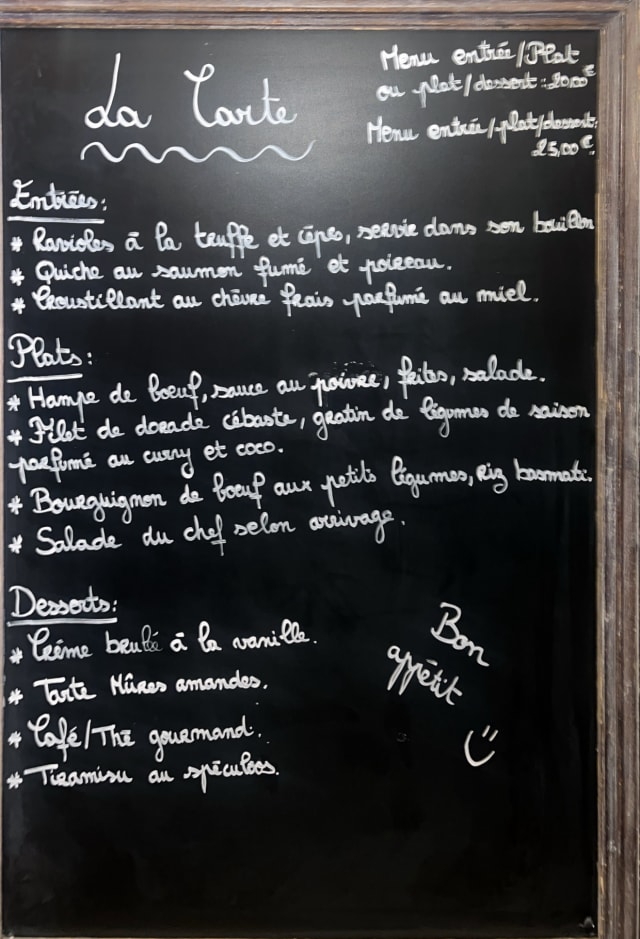 La Carte
Menu entrée/Plat
ou plat/dessert : 20,00€
Menu entrée/plat/dessert:
25,00€.
Entrées:
* Ravioles à la truffe et cèpes, servie dans son bouillon
* Quiche au saumon fumé et poireau.
* Croustillant au chèvre frais parfumé au miel.
Plats:
* Hampe de boeuf, sauce au poivre, frites, salade.
* Filet de dorade cébaste, gratin de légumes de saison
parfumé au curry et coco.
* Bourguignon de boeuf aux petits légumes, Riz basmati.
* Salade du chef selon arrivage.
Desserts:
* Créme brulé à la vanille.
* Tarte Mûres amandes.
* Café/Thé gourmand.
* Tiramisu au spéculoos.
Bon
appétit